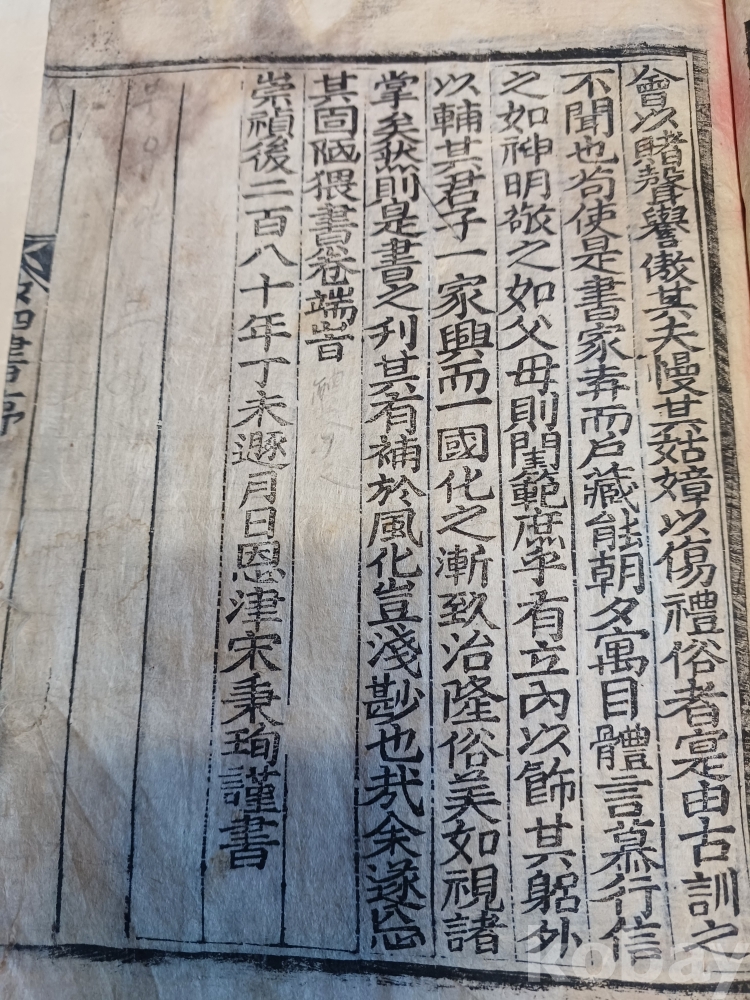 會以賭聲譽傲其夫慢其姑嫜以傷禮俗者寔由古訓之
不聞也苟使是書家弆而戶藏能朝夕寓目體言慕行信
之如神明敬之如父母則閨範庶乎有立內以飭其躬外
以輔其君子一家興而一國化之漸致治隆俗美如視諸
掌矣然則是書之刋其有補於風化豈淺尠也㢤余遂忘
其固陋猥書卷端旹
崇禎後二百八十年丁未遯月日恩津宋秉珣謹書
女四書序
kobay